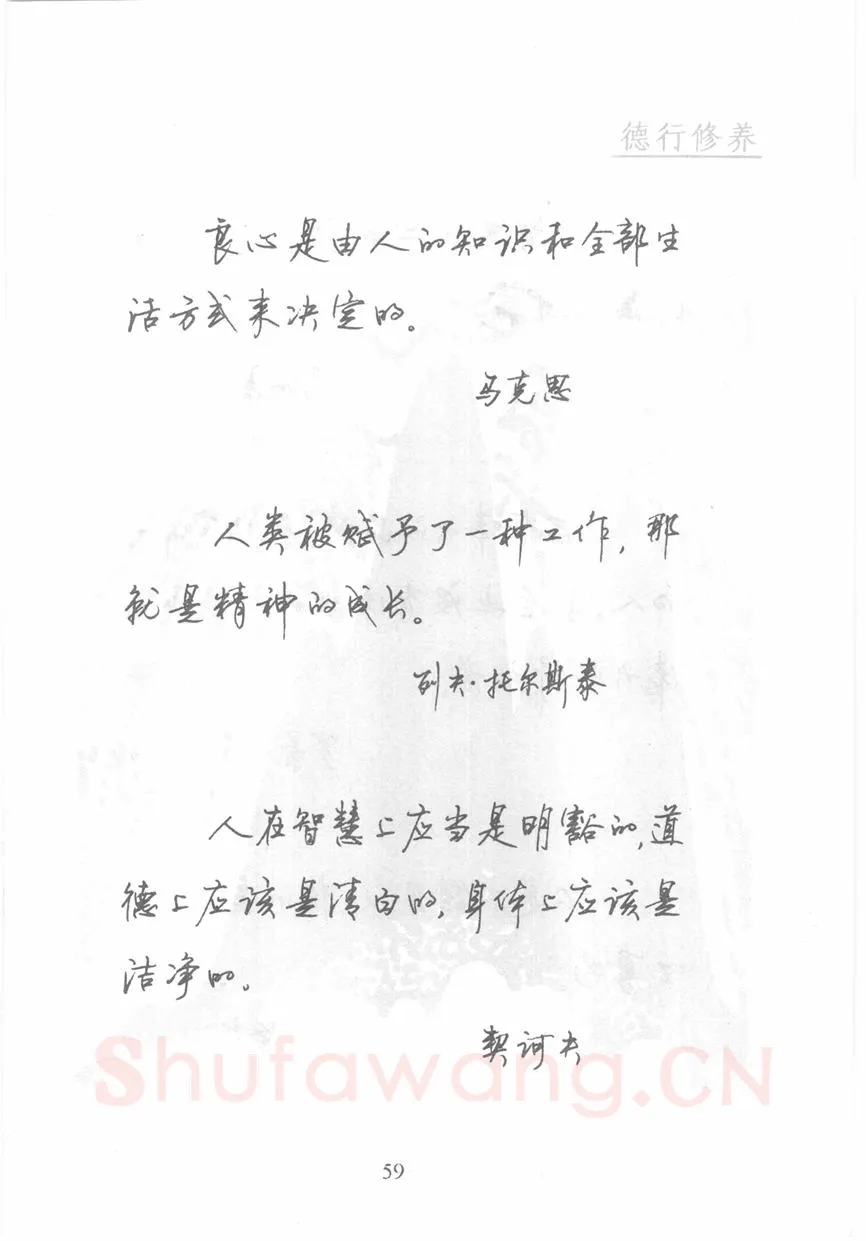 德行修养
良心是由人的知识和全部生
活方式来决定的。
马克思
人类被赋予了一种工作，那
就是精神的成长。
列夫·托尔斯泰
人在智慧上应当是明豁的，道
德上应该是清白的，身体上应该是
洁净的。
契诃夫
Shufawang.CN
59